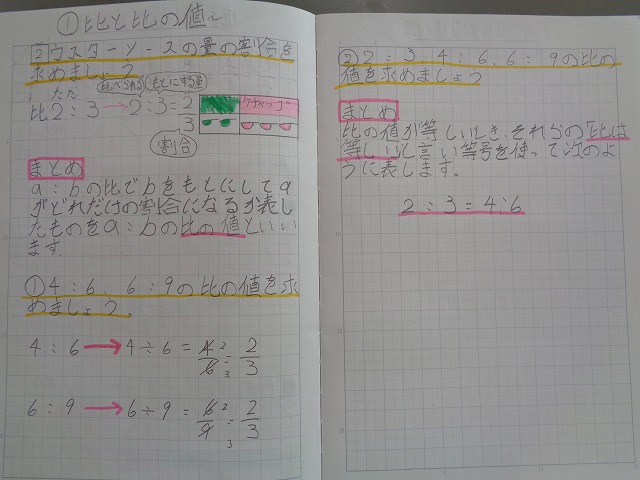 ①比と比の値〜
②ウスターソースの量の割合を
求めましょう
比べられる もとにする量
たた
比2:3→2:3=2/3
ケチャップ
割合
まとめ
a:bの比でbをもとにしてa
がどれだけの割合になるか表し
たものをa:bの比の値といい
ます。
①4:6、6:9の比の値を求
めましょう。
4:6→4÷6=4/6=2/3
6:9→6÷9=6/9=2/3
②2:3 4:6、6:9の比の
値を求めましょう
まとめ
比の値が等しいとき、それらの「比は
等しい」と言い等号を使って次のよ
うに表します。
2:3=4:6